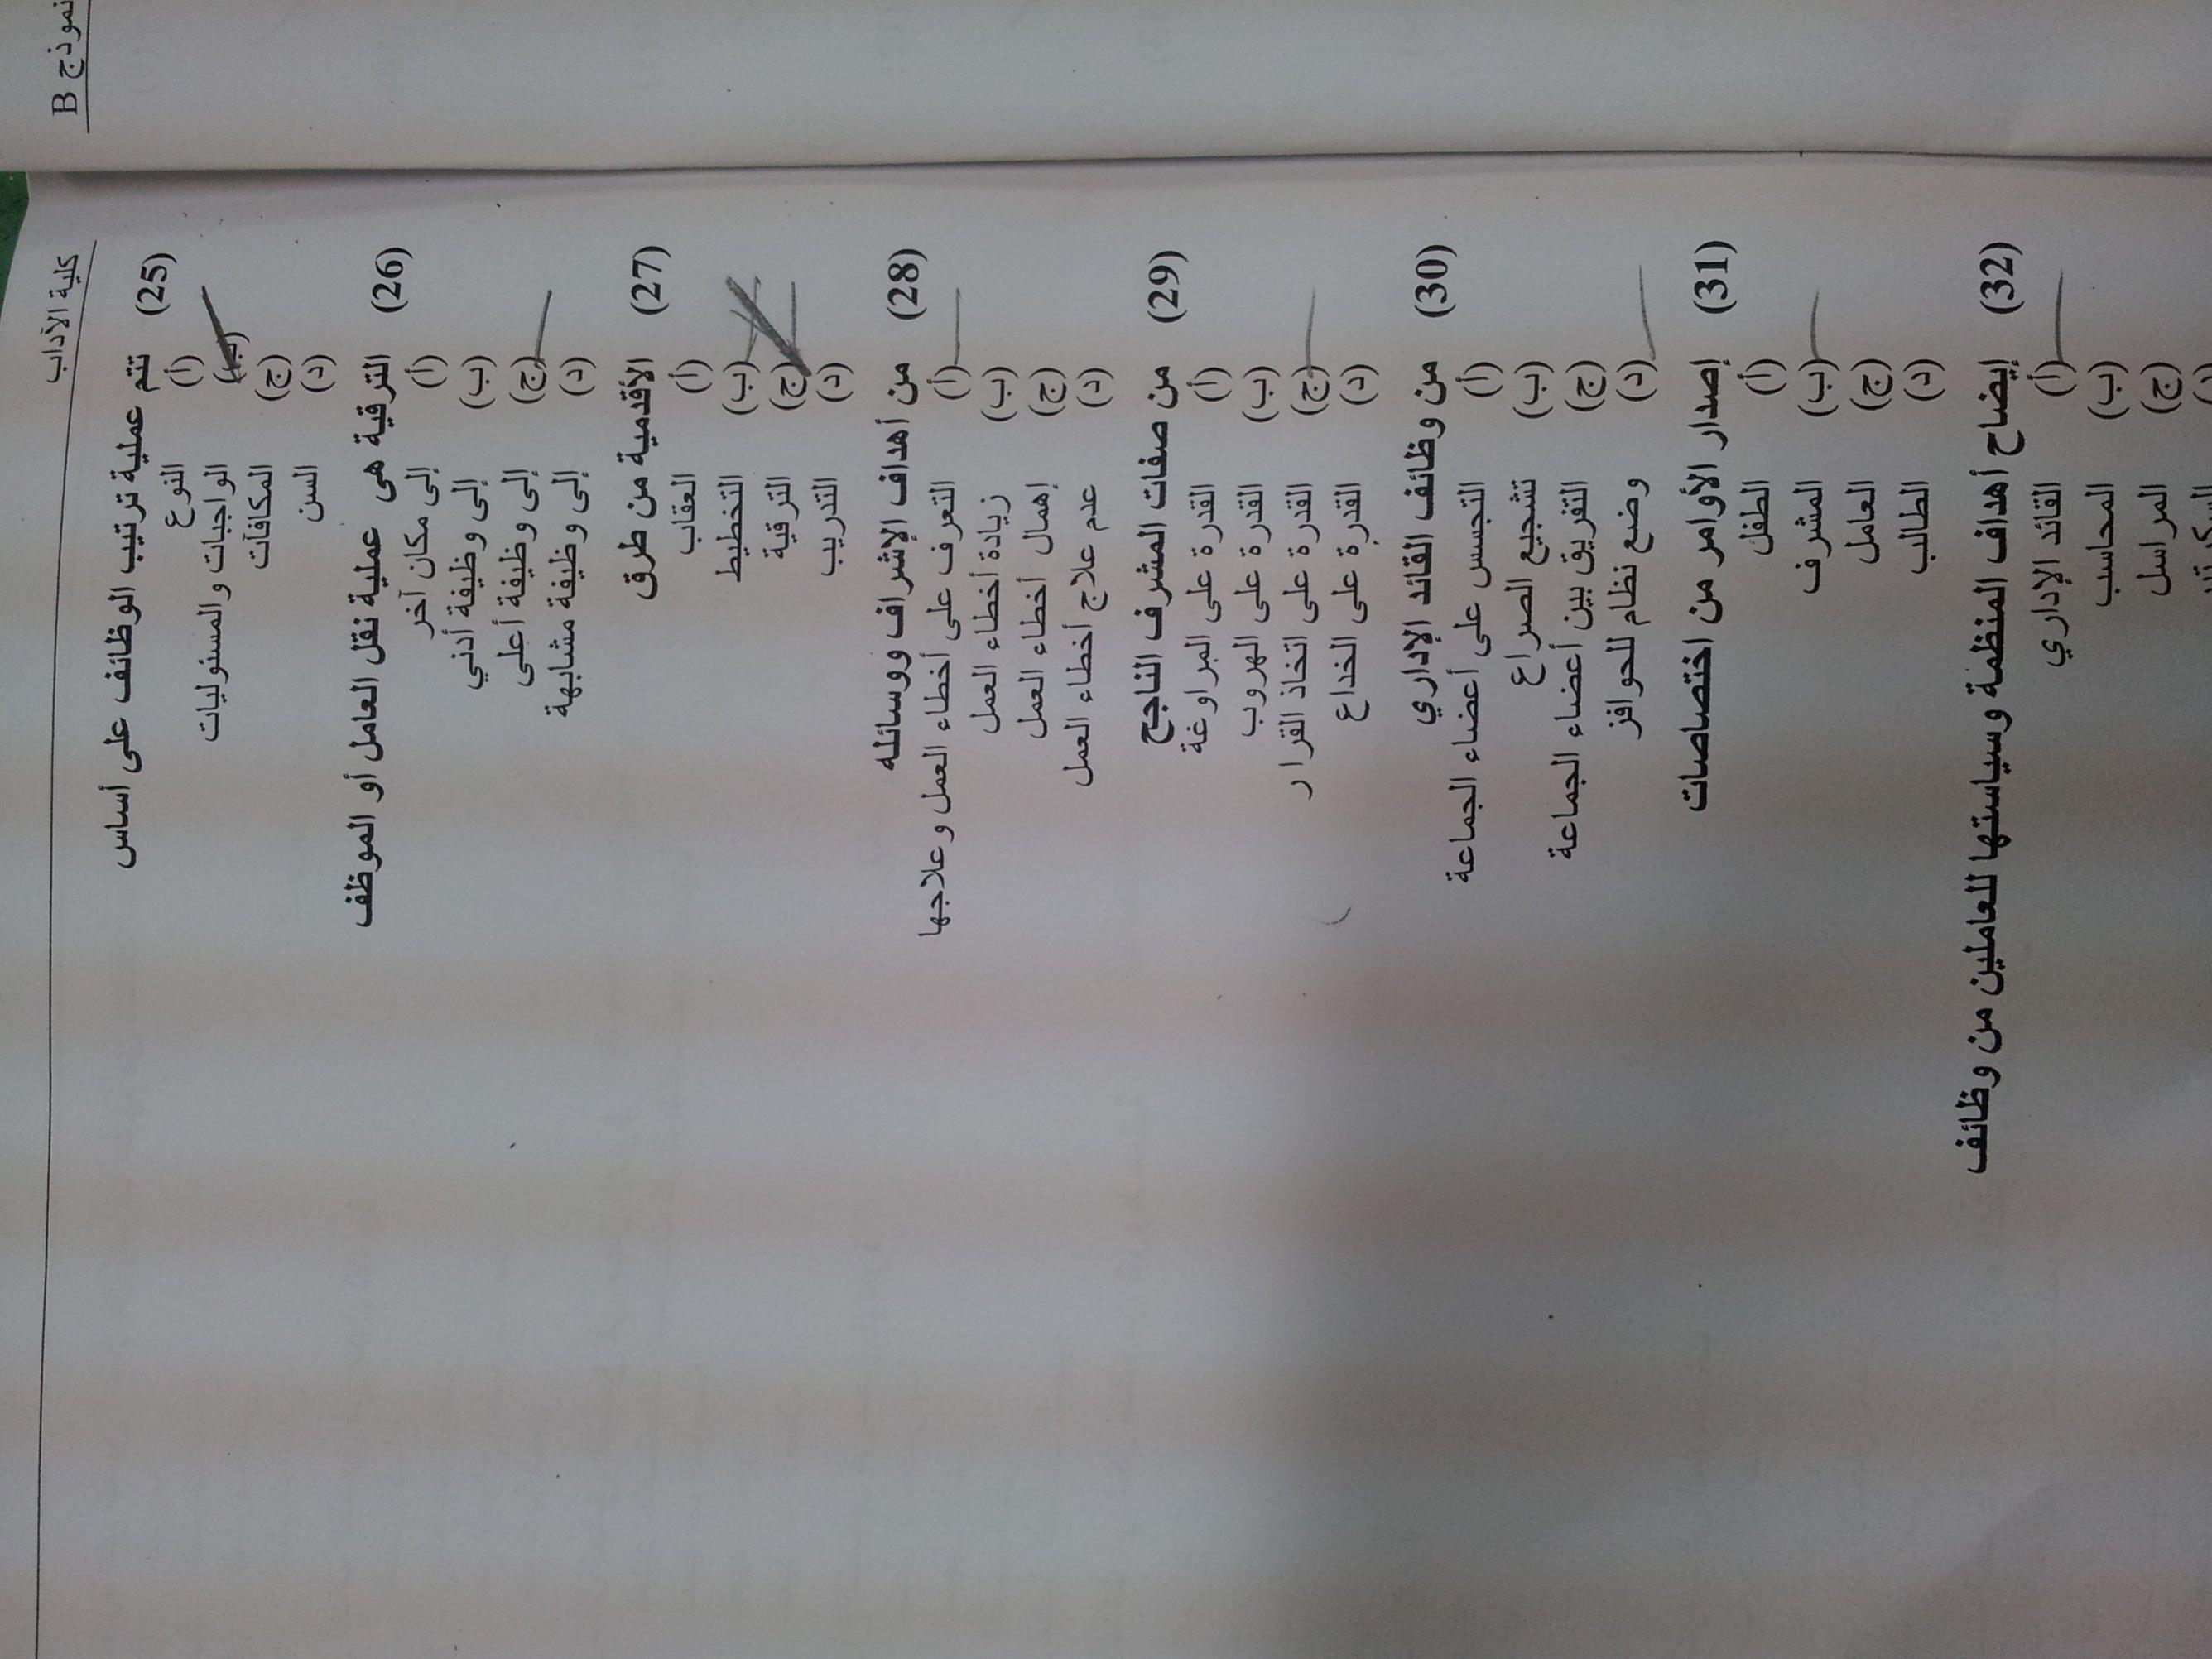 نموذج B
كلية الآداب
(25) تتم عملية ترتيب الوظائف على أساس
(أ) النوع
(ب) الواجبات والمسئوليات
(ج) المكافآت
(د) السن
(26) الترقية هى عملية نقل العامل أو الموظف
(أ) إلى مكان آخر
(ب) إلى وظيفة أدني
(ج) إلى وظيفة أعلى
(د) إلى وظيفة مشابهة
(27) الأقدمية من طرق
(أ) العقاب
(ب) التخطيط
(ج) الترقية
(د) التدريب
(28) من أهداف الإشراف ووسائله
(أ) التعرف على أخطاء العمل وعلاجها
(ب) زيادة أخطاء العمل
(ج) إهمال أخطاء العمل
(د) عدم علاج أخطاء العمل
(29) من صفات المشرف الناجح
(أ) القدرة على المراوغة
(ب) القدرة على الهروب
(ج) القدرة على اتخاذ القرار
(د) القدرة على الخداع
(30) من وظائف القائد الإداري
(أ) التجسس على أعضاء الجماعة
(ب) تشجيع الصراع
(ج) التفريق بين أعضاء الجماعة
(د) وضع نظام للحوافز
(31) إصدار الأوامر من اختصاصات
(أ) الطفل
(ب) المشرف
(ج) العامل
(د) الطالب
(32) إيضاح أهداف المنظمة وسياستها للعاملين من وظائف
(أ) القائد الإداري
(ب) المحاسب
(ج) المراسل